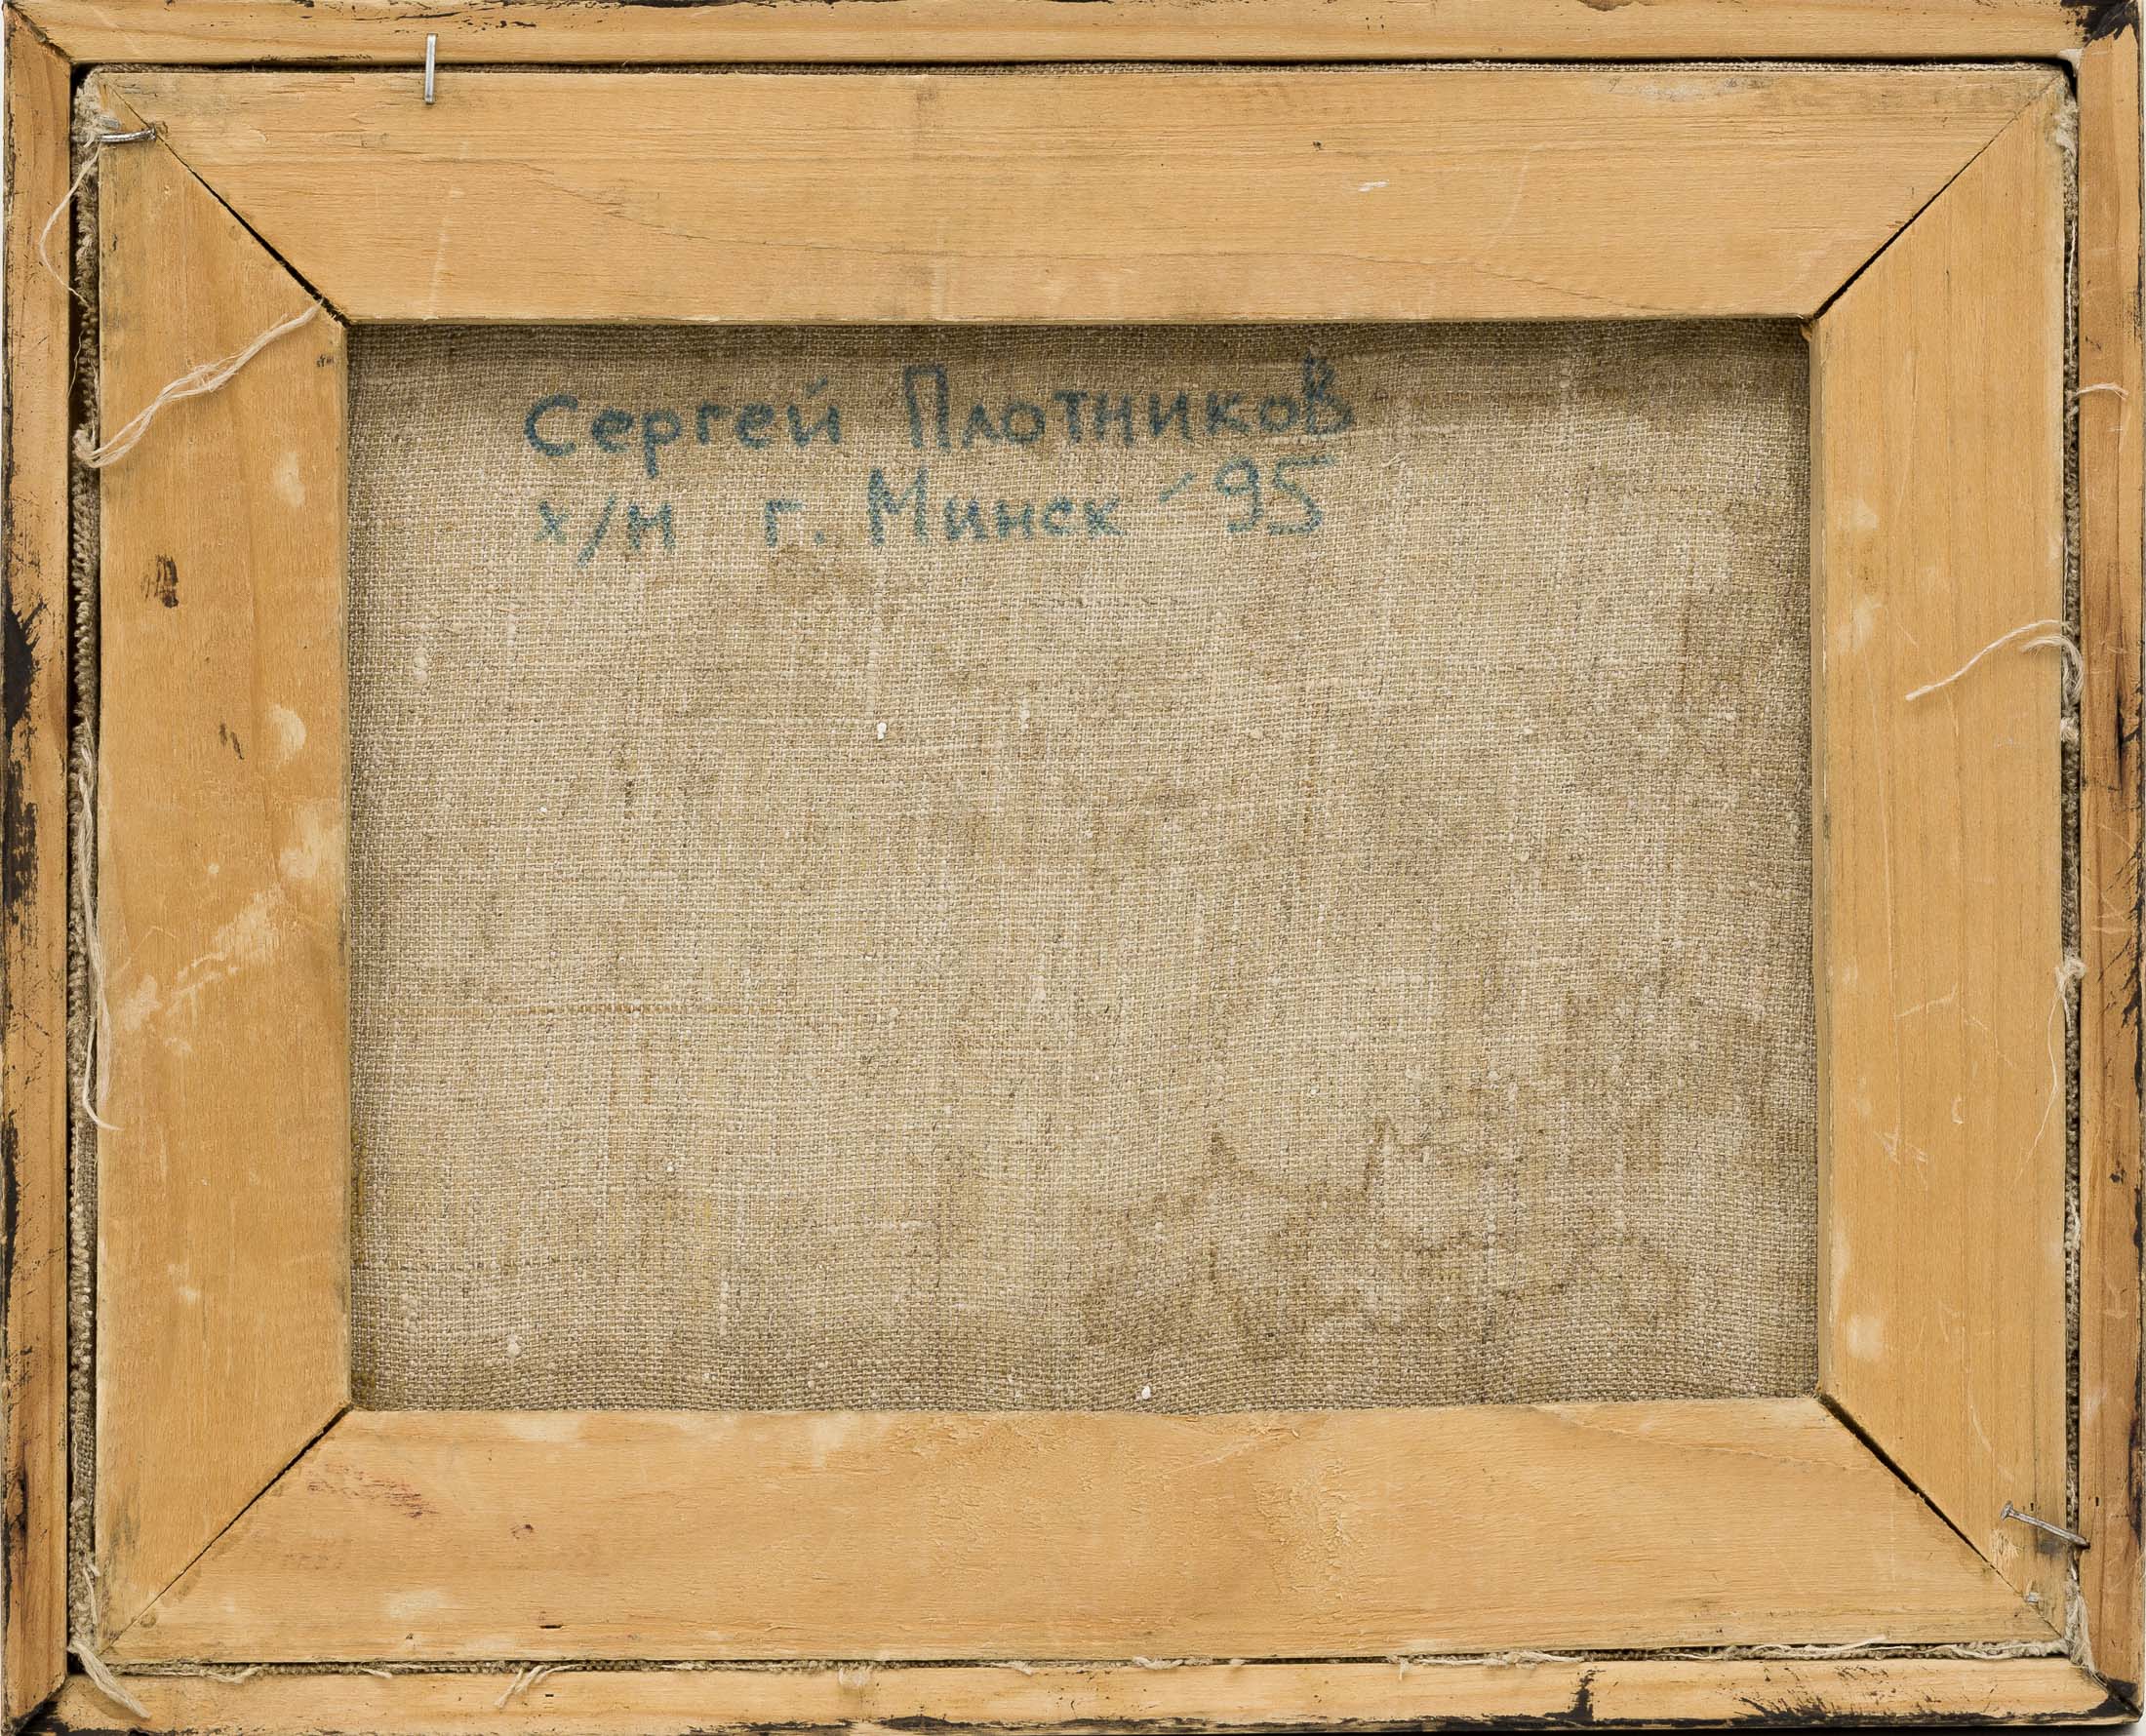 Сергей Плотников
х/м г. Минск - 95